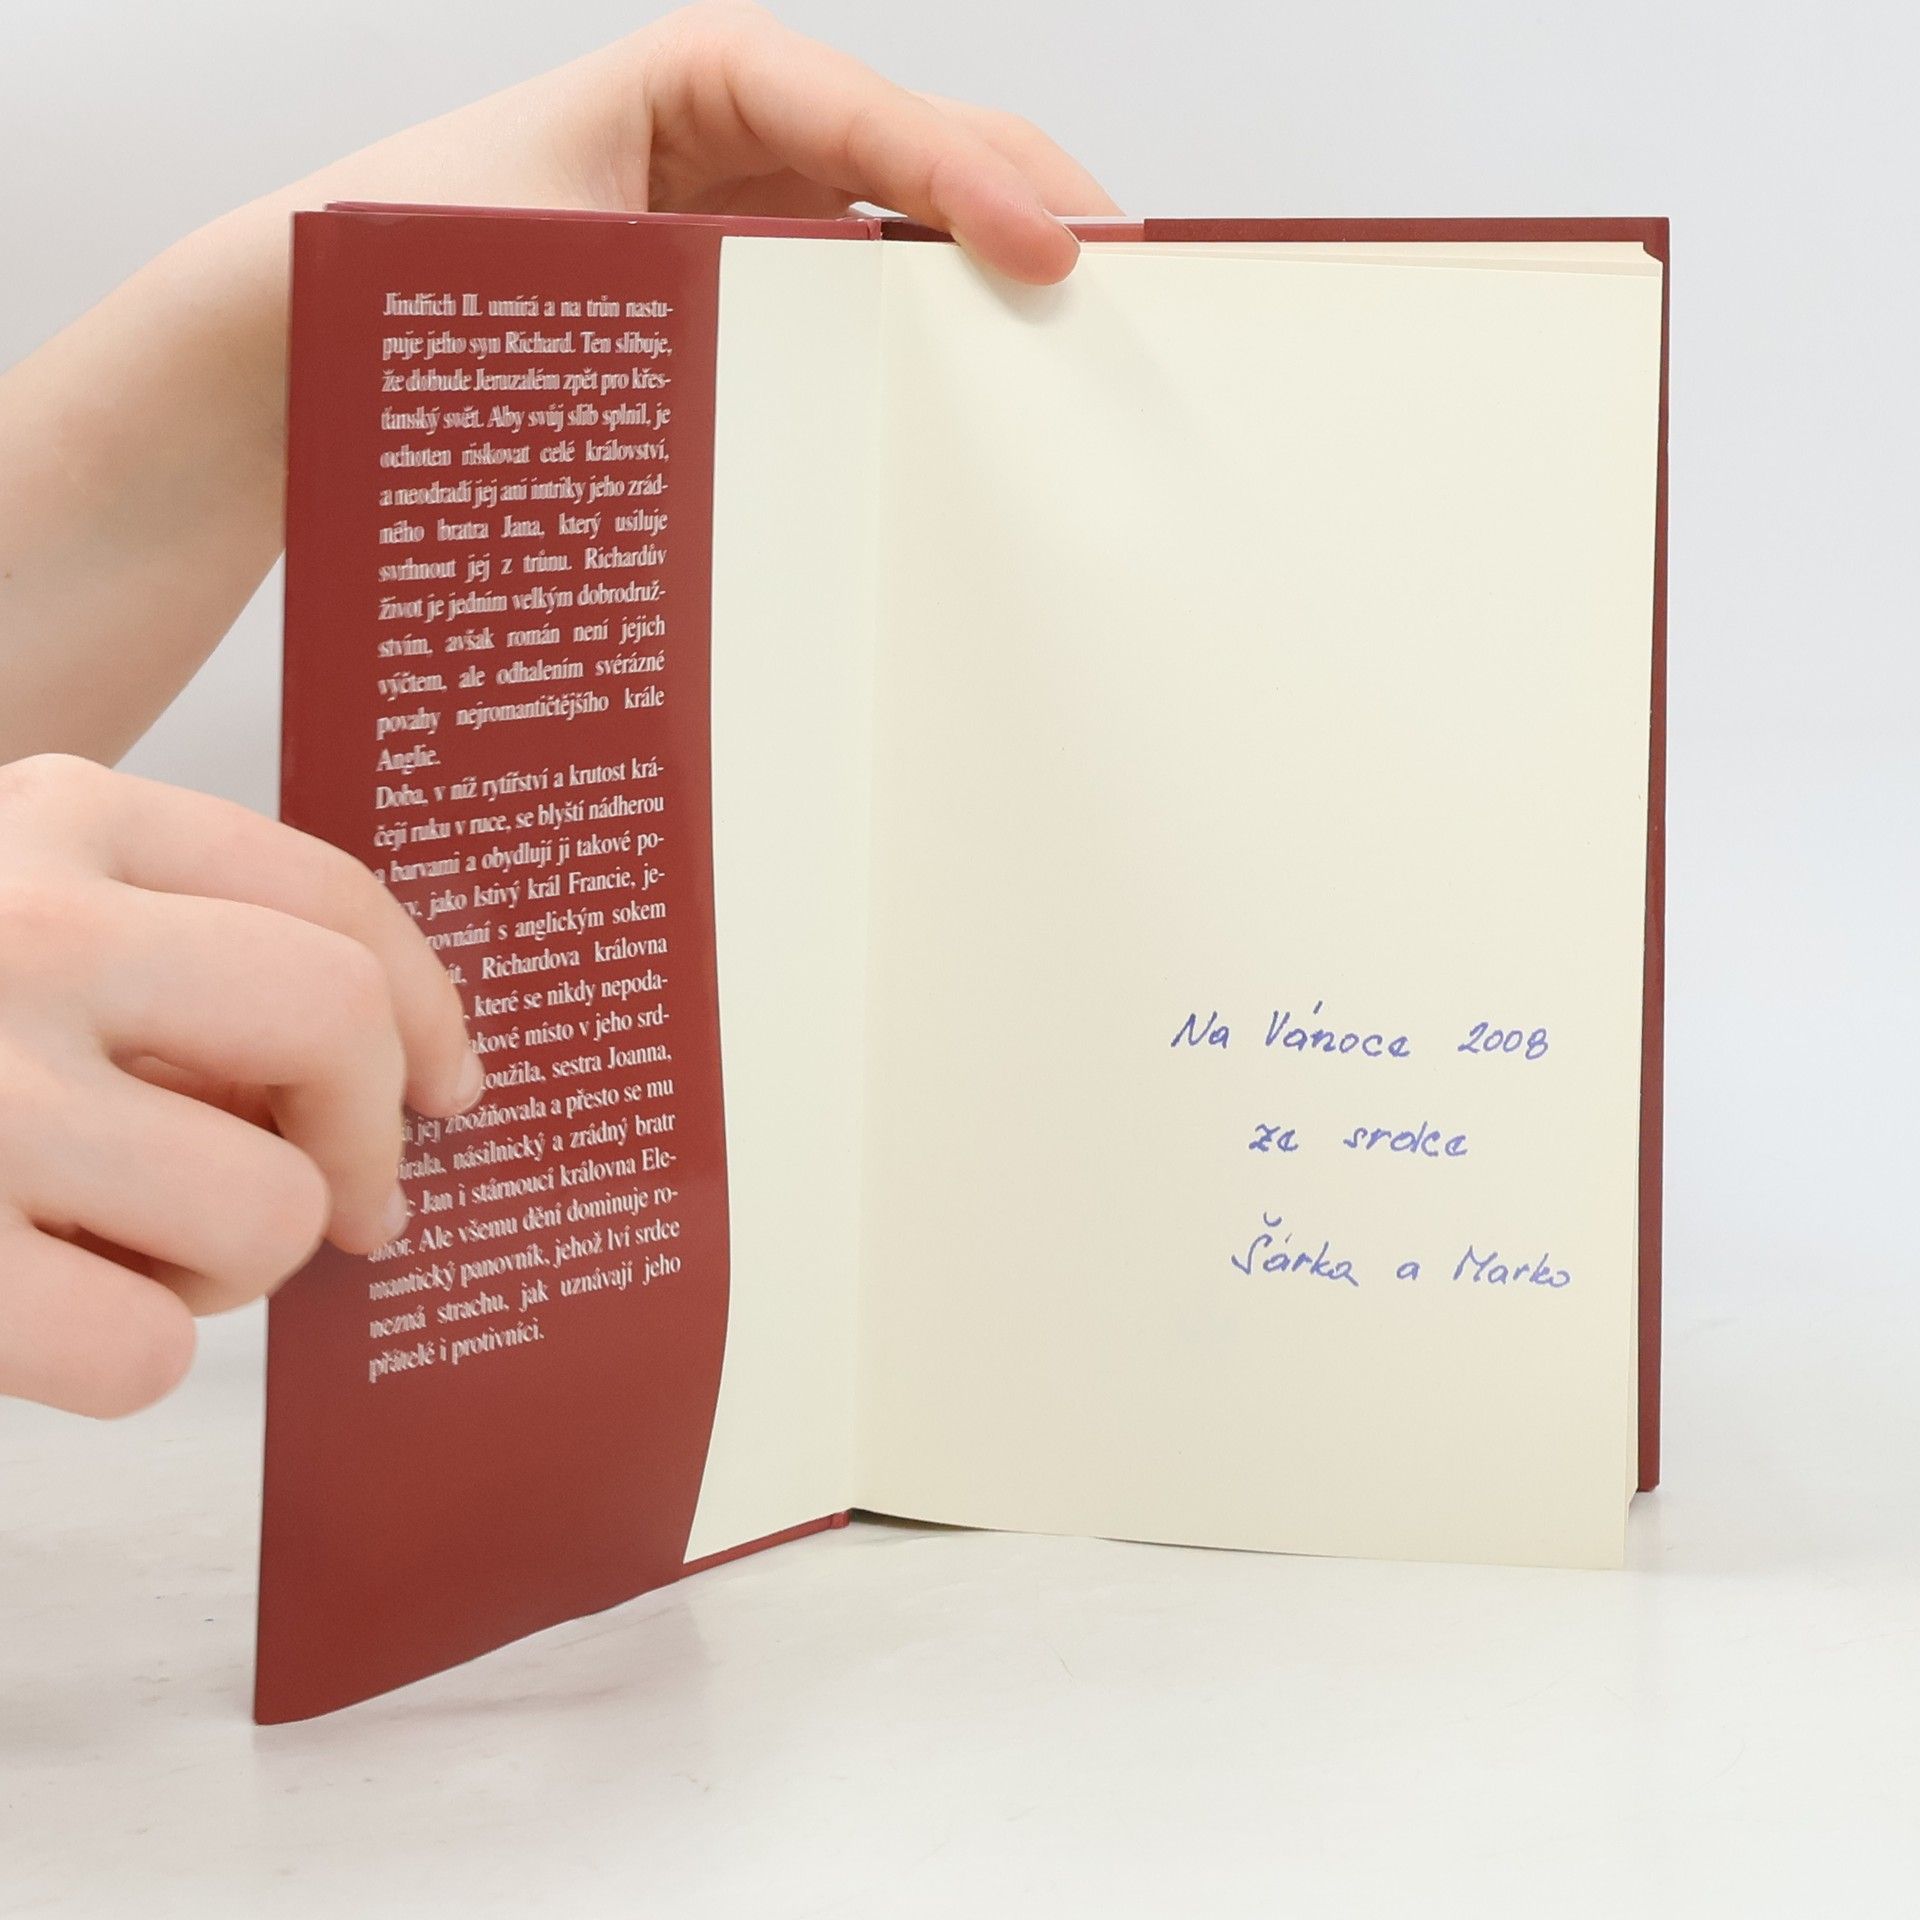 Jindřich II. umírá a na trůn nastu-
puje jeho syn Richard. Ten slibuje,
že dobude Jeruzalém zpět pro křes-
ťanský svět. Aby svůj slib splnil, je
ochoten riskovat celé království,
a neodradí jej ani intriky jeho zrád-
ného bratra Jana, který usiluje
svrhnout jej z trůnu. Richardův
život je jedním velkým dobrodruž-
stvím, avšak román není jejich
výčtem, ale odhalením svérázné
povahy nejromantičtějšího krále
Anglie.
Doba, v níž rytířství a krutost krá-
čejí ruku v ruce, se blyští nádherou
a barvami a obydlují ji takové po-
jako lstivý král Francie, je-
rovnání s anglickým sokem
Richardova královna
které se nikdy nepoda-
místo v jeho srd-
toužila, sestra Joanna,
jej zbožňovala a přesto se mu
násilnický a zrádný bratr
Jan i stárnoucí královna Ele-
Ale všemu dění dominuje ro-
mantický panovník, jehož lví srdce
nezná strachu, jak uznávají jeho
přátelé i protivníci.
Na Vánoce 2008
ze srdce
Šárka a Marko